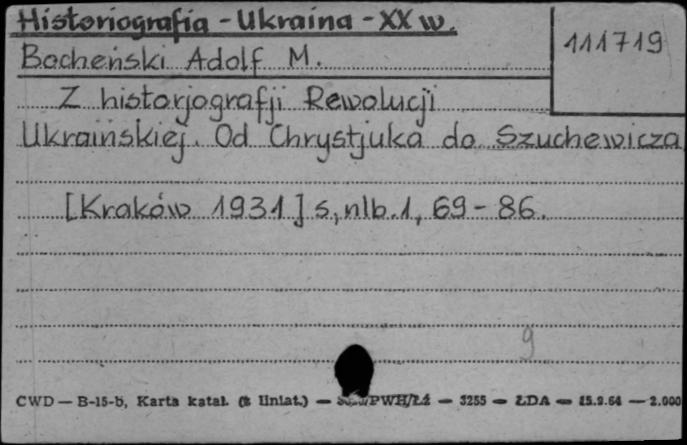 Historiografia - Ukraina - XX w.
111719
Bocheński Adolf M.
Z historjografji Rewolucji
Ukraińskiej. Od Chrystjuka do Szuchewicza
[Kraków 1931] s, nlb. 1, 69 - 86.
9
CWD — B-15-b, Karta katal. (z liniat.) — /PWH/Łź — 3255 — ŁDA — 15.9.64 — 2.000